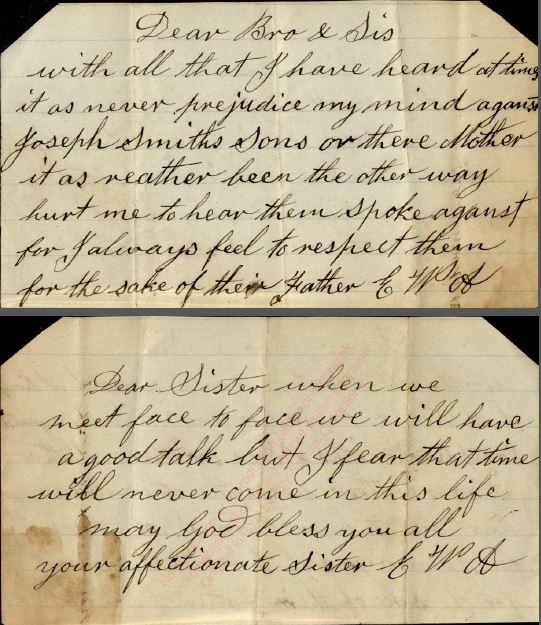 Dear Bro & Sis
with all that I have heard at times
it as never prejudice my mind against
Joseph Smiths Sons or there Mother
it as reather been the other way
hurt me to hear them spoke against
for I always feel to respect them
for the sake of their Father E W A
Dear Sister when we
meet face to face we will have
a good talk but I fear that time
will never come in this life
may God bless you all
your affectionate Sister E W A